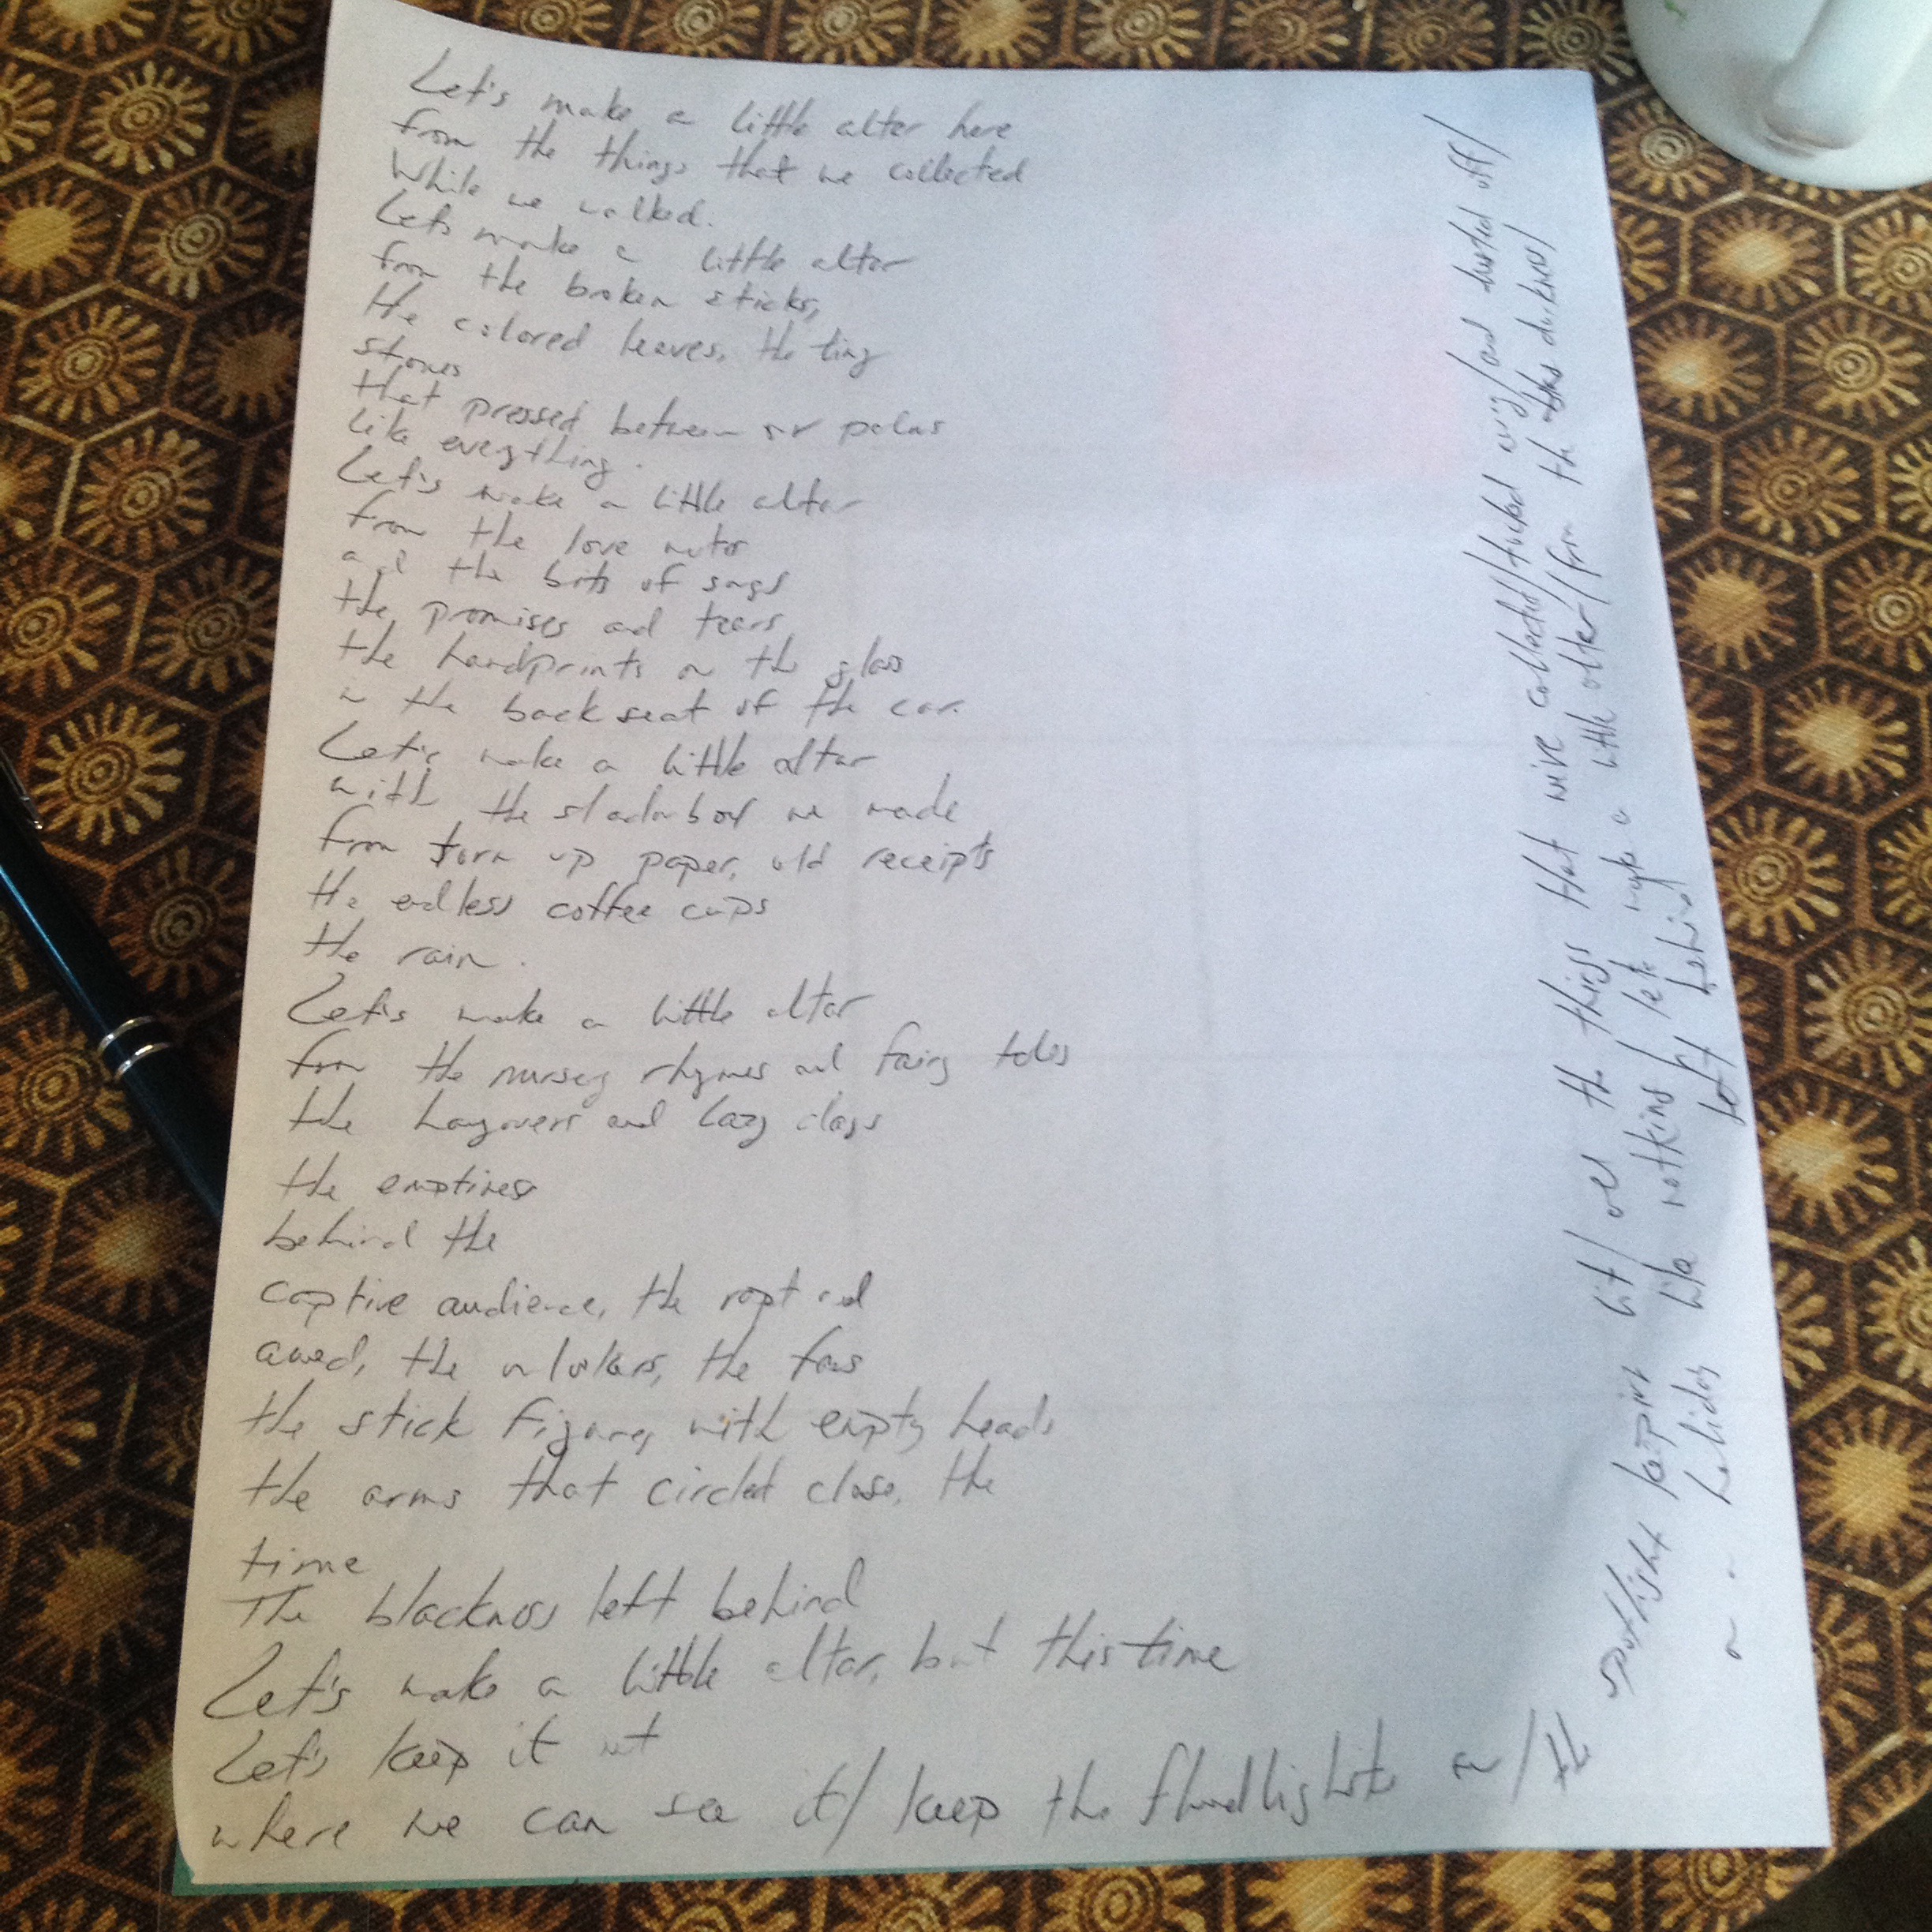 Let's make a little alter here
from the things that we collected
While we walked.
Lets make a little altar
from the broken sticks,
the colored leaves, the tiny
stones
that pressed between our palms
like everything.
Let's make a little altar
from the love notes
and the bits of songs
the promises and tears
the handprints on the glass
in the back seat of the car.
Let's make a little altar
with the we made
from torn up paper, old receipts
the endless coffee cups
the rain.
Let's make a little altar
from the nursery rhymes and fairy tales
the hangovers and lazy days
the emptiness
behind the
captive audience, the rapt and
awed, the onlookers, the fans
the stick figures with empty heads
the arms that circled close, the
time
The blackness left behind
Let's make a little altar, but this time
Let's keep it out
where we can see it/ keep the floodlights on/ the
spotlight keeping lit/ all the things that we've collected/tucked away/and dusted off/
like nothing/ lets make a little alter/from the darkness/
holiday left behind